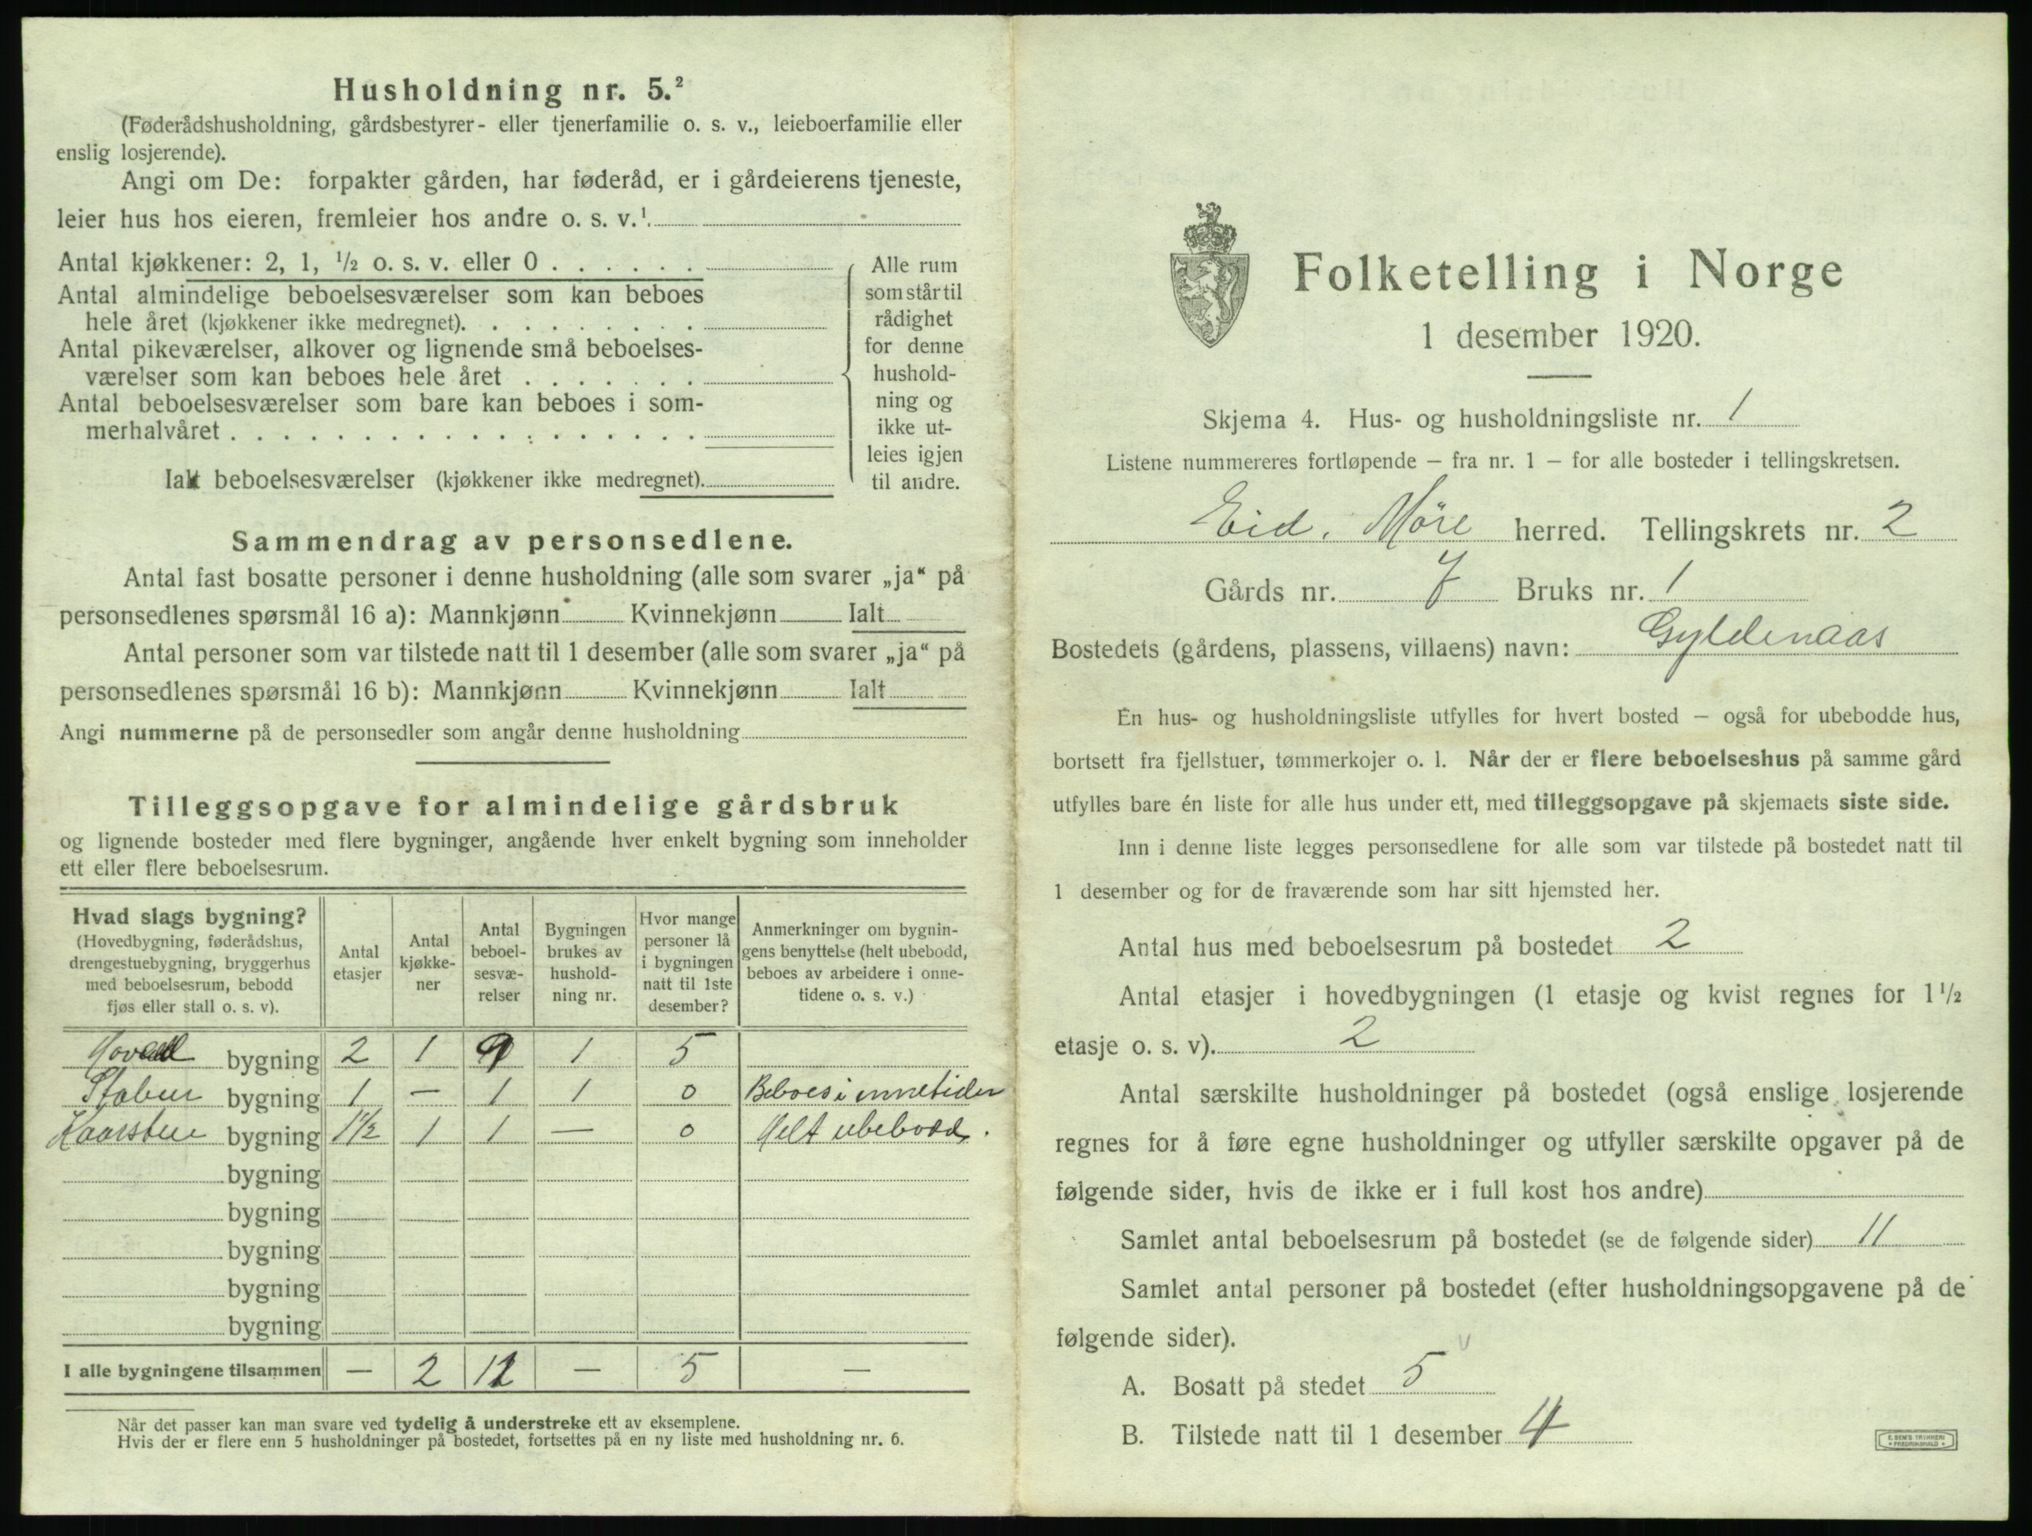 Husholdning nr. 5.²
(Føderådshusholdning, gårdsbestyrer- eller tjenerfamilie o. s. v., leieboerfamilie eller
enslig losjerende).
Angi om De: forpakter gården, har føderåd, er i gårdeierens tjeneste,
leier hus hos eieren, fremleier hos andre o. s. v.¹
Antal kjøkkener: 2, 1, ½ o. s. v. eller 0 . . . . . .
Antal almindelige beboelsesværelser som kan beboes
hele året (kjøkkener ikke medregnet). . . . . . . . .
Antal pikeværelser, alkover og lignende små beboelses-
værelser som kan beboes hele året . . . . . . .
Antal beboelsesværelser som bare kan beboes i som-
merhalvåret . . . . . . . . . . . . . . . . . .
Ialt beboelsesværelser (kjøkkener ikke medregnet).
Alle rum
som står til
rådighet
for denne
hushold-
ning og
ikke ut-
leies igjen
til andre.
Sammendrag av personsedlene.
Antal fast bosatte personer i denne husholdning (alle som svarer „ja“ på
personsedlenes spørsmål 16 a): Mannkjønn Kvinnekjønn Ialt
Antal personer som var tilstede natt til 1 desember (alle som svarer „ja“ på
personsedlenes spørsmål 16 b): Mannkjønn Kvinnekjønn Ialt
Angi nummerne på de personsedler som angår denne husholdning
Tilleggsopgave for almindelige gårdsbruk
og lignende bosteder med flere bygninger, angående hver enkelt bygning som inneholder
ett eller flere beboelsesrum.
Hvad slags bygning?
(Hovedbygning, føderådshus,
drengestuebygning, bryggerhus
med beboelsesrum, bebodd
fjøs eller stall o. s. v).
Antal
etasjer
Antal
kjøkke-
ner
Antal
beboel-
sesvæ-
relser
Bygningen
brukes av
hushold-
ning nr.
Hvor mange
personer lå
i bygningen
natt til 1ste
desember?
Anmerkninger om bygnin-
gens benyttelse (helt ubebodd,
beboes av arbeidere i onne-
tidene o. s. v.)
Hoved bygning 2 1 9 1 5
Stabur bygning 1 — 1 1 0 Beboes i onnetider
Kaarstue bygning 1½ 1 1 — 0 Helt ubebodd.
bygning
bygning
bygning
bygning
bygning
I alle bygningene tilsammen — 2 11 — 5 —
Når det passer kan man svare ved tydelig å understreke ett av eksemplene.
Hvis der er flere enn 5 husholdninger på bostedet, fortsettes på en ny liste med husholdning nr. 6.
Folketelling i Norge
1 desember 1920.
Skjema 4. Hus- og husholdningsliste nr. 1
Listene nummereres fortløpende – fra nr. 1 – for alle bosteder i tellingskretsen.
Eid, Møre herred. Tellingskrets nr. 2
Gårds nr. 7 Bruks nr. 1
Bostedets (gårdens, plassens, villaens) navn: Gyldenaas
En hus- og husholdningsliste utfylles for hvert bosted – også for ubebodde hus,
bortsett fra fjellstuer, tømmerkojer o. l. Når der er flere beboelseshus på samme gård
utfylles bare én liste for alle hus under ett, med tilleggsopgave på skjemaets siste side.
Inn i denne liste legges personsedlene for alle som var tilstede på bostedet natt til
1 desember og for de fraværende som har sitt hjemsted her.
Antal hus med beboelsesrum på bostedet 2
Antal etasjer i hovedbygningen (1 etasje og kvist regnes for 1½
etasje o. s. v). 2
Antal særskilte husholdninger på bostedet (også enslige losjerende
regnes for å føre egne husholdninger og utfyller særskilte opgaver på de
følgende sider, hvis de ikke er i full kost hos andre)
Samlet antal beboelsesrum på bostedet (se de følgende sider) 11
Samlet antal personer på bostedet (efter husholdningsopgavene på de
følgende sider).
A. Bosatt på stedet 5
B. Tilstede natt til 1 desember 4